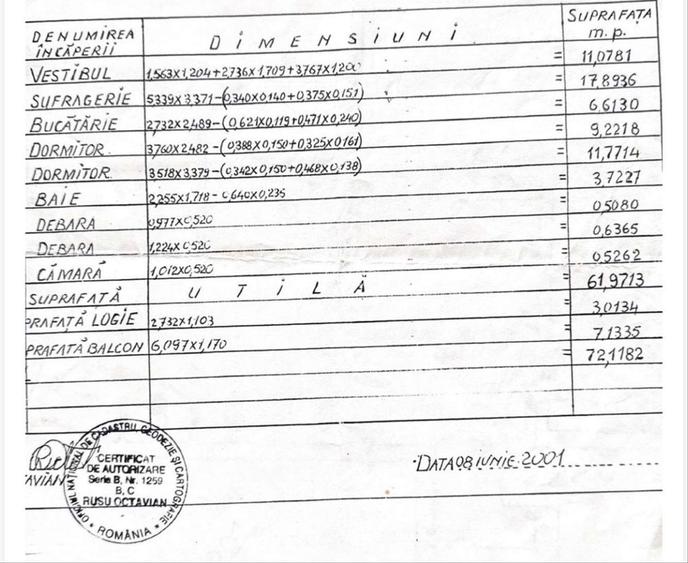 DENUMIREA ÎNCĂPERII DIMENSIUNI SUPRAFAȚA m.p.
VESTIBUL 1,563x1,204+2,736x1,709+3,767x1,200 = 11,0781
SUFRAGERIE 5339x3,371-(0,340x0,140+0,375x0,151) = 17,8936
BUCĂTĂRIE 2,732x2,489-(0,621x0,119+0,471x0,240) = 6,6130
DORMITOR 3,760x2,482-(0,388x0,150+0,325x0,161) = 9,2218
DORMITOR 3,518x3,379-(0,342x0,150+0,468x0,138) = 11,7714
BAIE 2,255x1,718-0,640x0,235 = 3,7227
DEBARA 0,977x0,520 = 0,5080
DEBARA 1,224x0,520 = 0,6365
CĂMARĂ 1,012x0,520 = 0,5262
SUPRAFAȚĂ UTILĂ = 61,9713
PRAFAȚĂ LOGIE 2,732x1,103 = 3,0134
PRAFATĂ BALCON 6,097x1,170 = 7,1335
= 72,1182
DATA 08 IUNIE 2001
AVIAN
OFICIUL NAȚIONAL DE CADASTRU GEODEZIE ȘI CARTOGRAFIE
CERTIFICAT
DE AUTORIZARE
Seria B, Nr. 1259
B, C
RUSU OCTAVIAN
* ROMÂNIA *